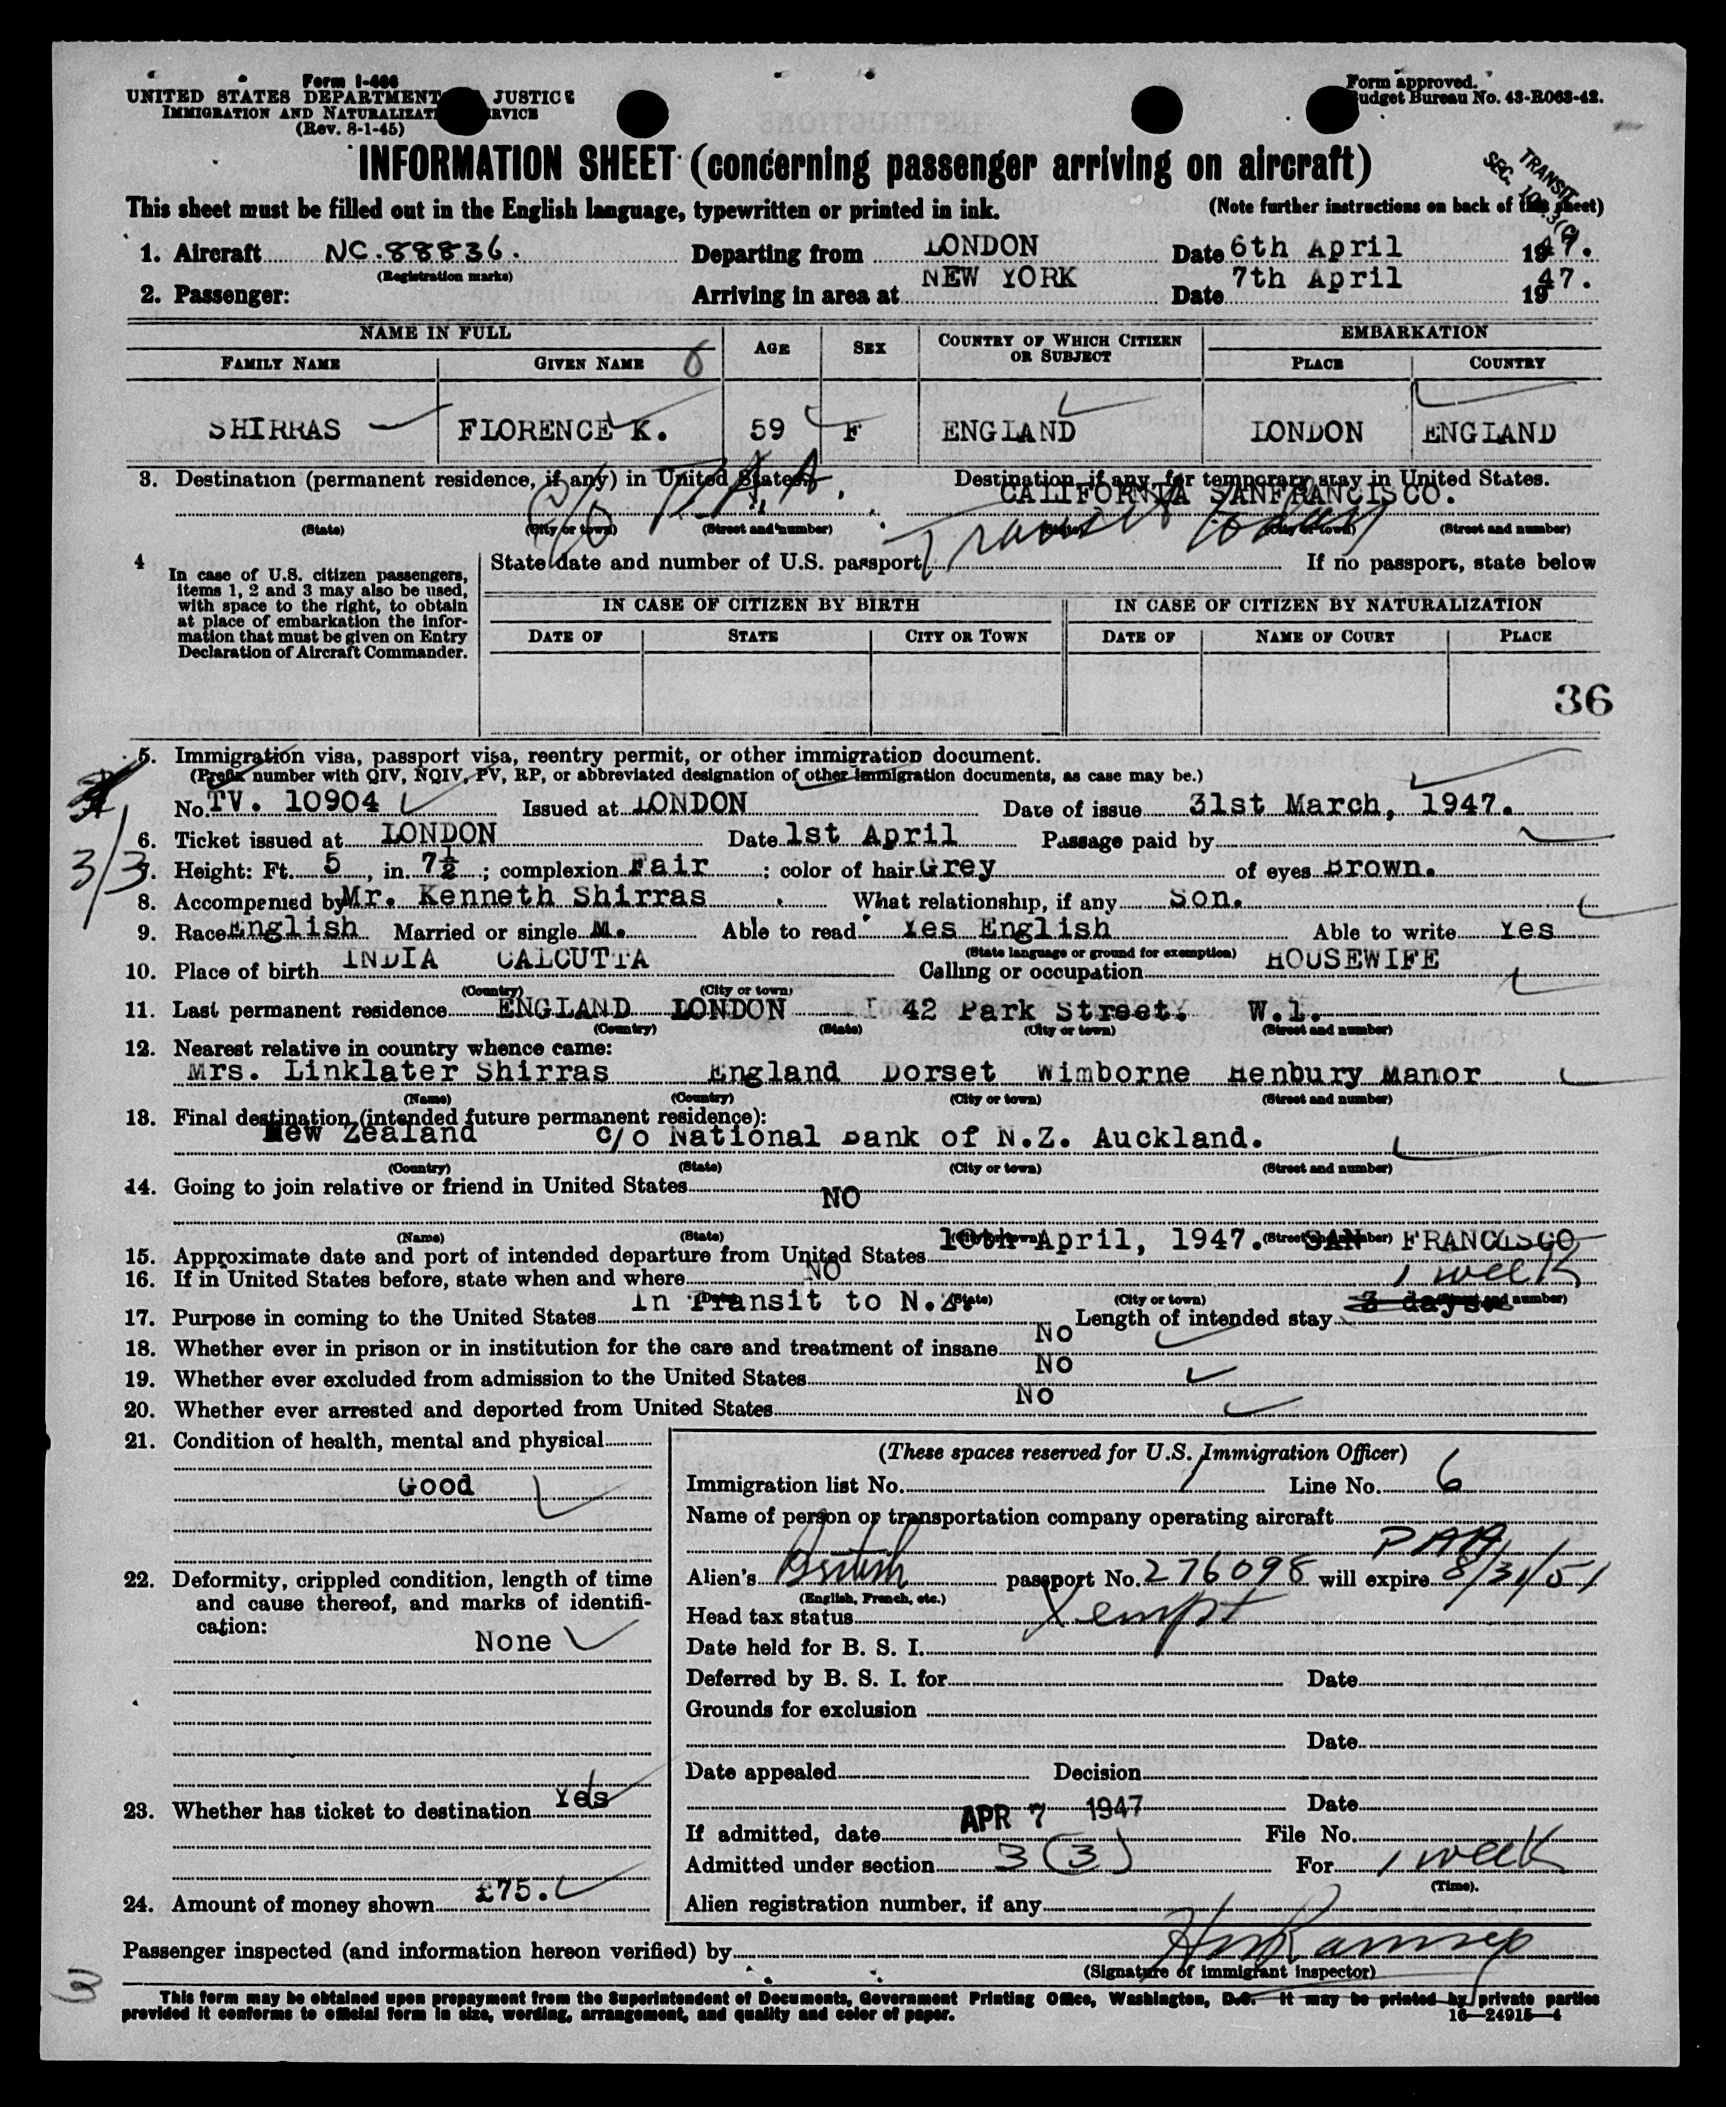 Form I-466
UNITED STATES DEPARTMENT JUSTICE
IMMIGRATION AND NATURALIZATI RVICE
(Rev. 8-1-45)
Form approved.
Budget Bureau No. 43-R063-42.
INFORMATION SHEET (concerning passenger arriving on aircraft)
TRANSIT
SEC.
This sheet must be filled out in the English language, typewritten or printed in ink. (Note further instructions on back of this sheet)
1. Aircraft NC.88836. Departing from LONDON Date 6th April 1947.
(Registration marks)
2. Passenger: Arriving in area at NEW YORK Date 7th April 1947.
NAME IN FULL AGE SEX COUNTRY OF WHICH CITIZEN OR SUBJECT EMBARKATION
FAMILY NAME GIVEN NAME 6 PLACE COUNTRY
SHIRRAS FLORENCE K. 59 F ENGLAND LONDON ENGLAND
3. Destination (permanent residence, if any) in United States. Destination if any, for temporary stay in United States.
c/o P.A.A. CALIFORNIA SANFRANCISCO.
(State) (City or town) (Street and number) (State) (City or town) (Street and number)
Transit today
4 In case of U.S. citizen passengers, items 1, 2 and 3 may also be used, with space to the right, to obtain at place of embarkation the information that must be given on Entry Declaration of Aircraft Commander.
State date and number of U.S. passport If no passport, state below
IN CASE OF CITIZEN BY BIRTH IN CASE OF CITIZEN BY NATURALIZATION
DATE OF STATE CITY OR TOWN DATE OF NAME OF COURT PLACE
36
5. Immigration visa, passport visa, reentry permit, or other immigration document.
(Prefix number with QIV, NQIV, PV, RP, or abbreviated designation of other immigration documents, as case may be.)
No. TV. 10904 Issued at LONDON Date of issue 31st March, 1947.
6. Ticket issued at LONDON Date 1st April Passage paid by
3/3
7. Height: Ft. 5, in. 7½; complexion Fair; color of hair Grey of eyes Brown.
8. Accompanied by Mr. Kenneth Shirras. What relationship, if any Son.
9. Race English Married or single M. Able to read Yes English Able to write Yes
(State language or ground for exemption)
10. Place of birth INDIA CALCUTTA Calling or occupation HOUSEWIFE
(Country) (City or town)
11. Last permanent residence ENGLAND LONDON 42 Park Street. W.1.
(Country) (State) (City or town) (Street and number)
12. Nearest relative in country whence came:
Mrs. Linklater Shirras England Dorset Wimborne Henbury Manor
(Name) (Country) (City or town) (Street and number)
13. Final destination (intended future permanent residence):
New Zealand c/o National Bank of N.Z. Auckland.
(Country) (State) (City or town) (Street and number)
14. Going to join relative or friend in United States NO
(Name) (State) (City or town) (Street and number)
15. Approximate date and port of intended departure from United States 10th April, 1947. SAN FRANCISCO
16. If in United States before, state when and where NO
1 week
(Date) (State) (City or town) (Street and number)
17. Purpose in coming to the United States In Transit to N.Z. Length of intended stay 3 days.
18. Whether ever in prison or in institution for the care and treatment of insane No
19. Whether ever excluded from admission to the United States No
20. Whether ever arrested and deported from United States No
21. Condition of health, mental and physical
Good
22. Deformity, crippled condition, length of time
and cause thereof, and marks of identifi-
cation:
None
23. Whether has ticket to destination Yes
24. Amount of money shown £75.
(These spaces reserved for U.S. Immigration Officer)
Immigration list No. 1 Line No. 6
Name of person or transportation company operating aircraft
PAA
Alien's British passport No. 276098 will expire 8/31/51
(English, French, etc.)
Head tax status Xempt
Date held for B. S. I.
Deferred by B. S. I. for Date
Grounds for exclusion
Date
Date appealed Decision
Date
If admitted, date APR 7 1947 File No.
Admitted under section 3 (3) For 1 week
(Time).
Alien registration number, if any
Passenger inspected (and information hereon verified) by
(Signature of immigrant inspector)
3
This form may be obtained upon prepayment from the Superintendent of Documents, Government Printing Office, Washington, D.C. It may be printed by private parties
provided it conforms to official form in size, wording, arrangement, and quality and color of paper.
16—24915—4